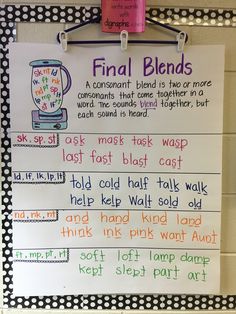 write words
with
digraphs
Final Blends
A consonant blend is two or more
consonants that come together in a
word. The sounds blend together, but
each sound is heard.
sk, sp, st
ask mask task wasp
last fast blast cast
ld, lf, lk, lp, lt
told cold half talk walk
help kelp Walt sold old
nd, nk, nt
and hand kind land
think ink pink want Aunt
ft, mp, pt, rt
soft loft lamp damp
kept slept part art